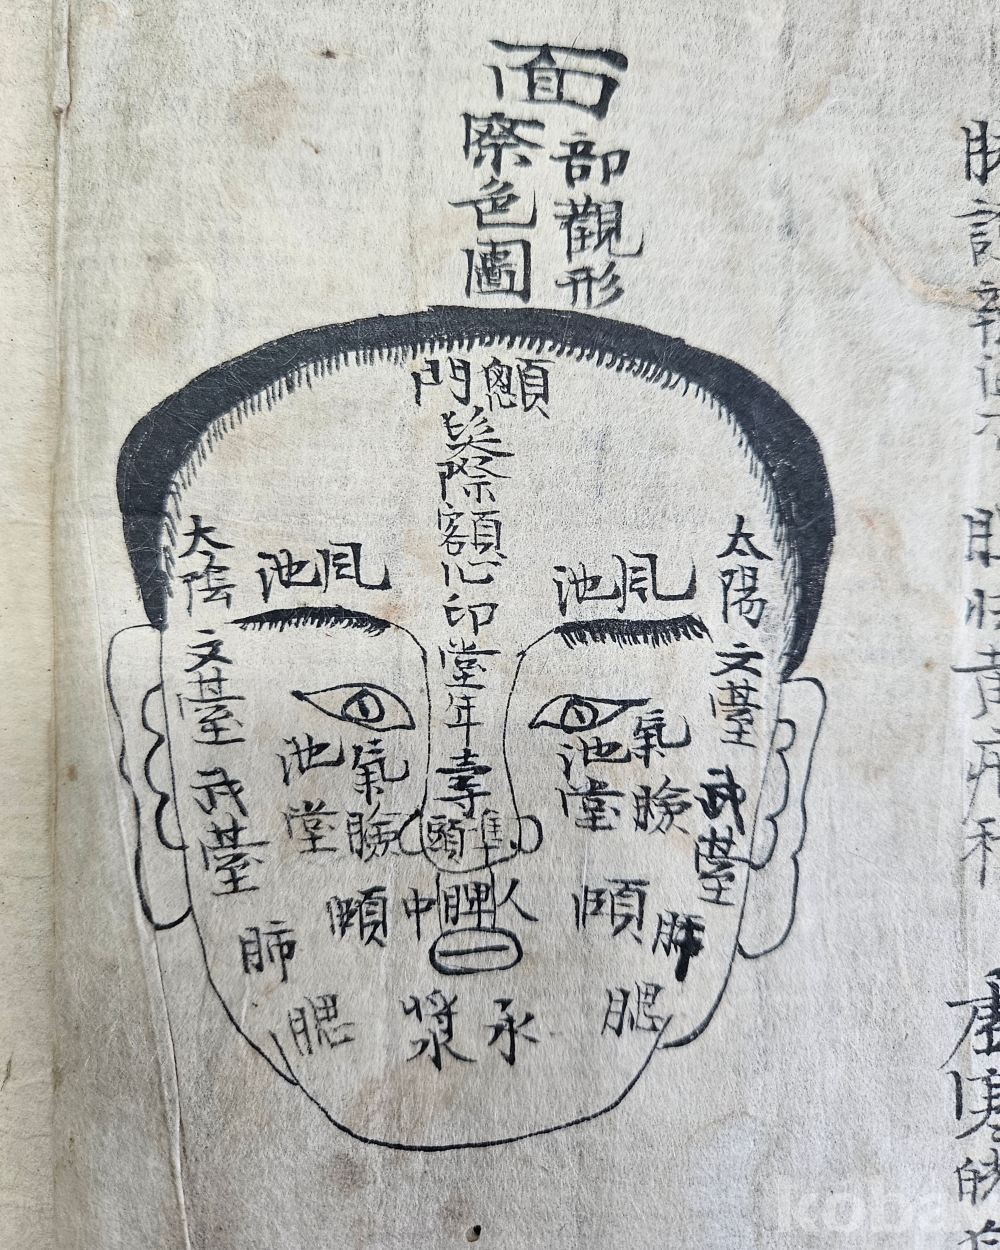 面
部觀形
察色圖
顖門
髮際額心印堂年壽
準頭
太陽
文臺
武臺
風池
氣池
臉堂
太陰
文臺
武臺
風池
氣池
臉堂
人中
脾
頤
肺
腮
頤
肺
腮
承漿
黃
寒
koba